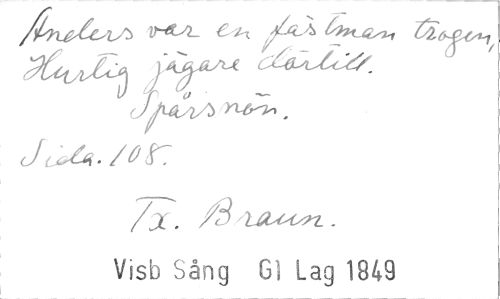 Anders var en fästman trogen,
Hurtig jägare därtill.
Spårsnön.
Sida. 108.
Tx. Braun.
Visb Sång Gl Lag 1849